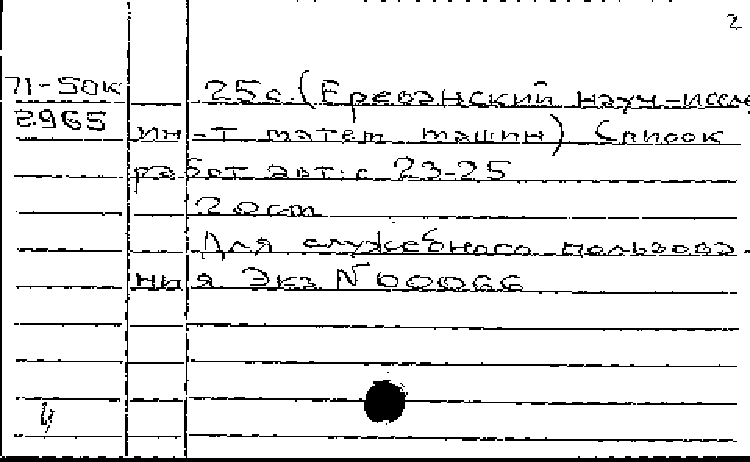 2
71-50к 25с.(Ереванский науч-иссле
2965 ин-т матем машин) Список
работ авт: с 23-25
20см
Для служебного пользова-
ния Экз N 00066